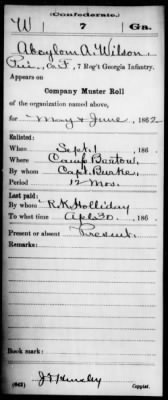 (Confederate.)
W 7 Ga.
Absylom A. Wilson,
Pvt., Co. F, 7 Reg't Georgia Infantry.
Appears on
Company Muster Roll
of the organization named above,
for May & June, 1862
Enlisted:
When Sept. 1, 186 .
Where Camp Bartow,
By whom Capt. Burke,
Period 12 Mos.
Last paid:
By whom R. K. Holliday
To what time Apl. 30, 186 .
Present or absent Present.
Remarks:
Book mark:
(642) Copyist.